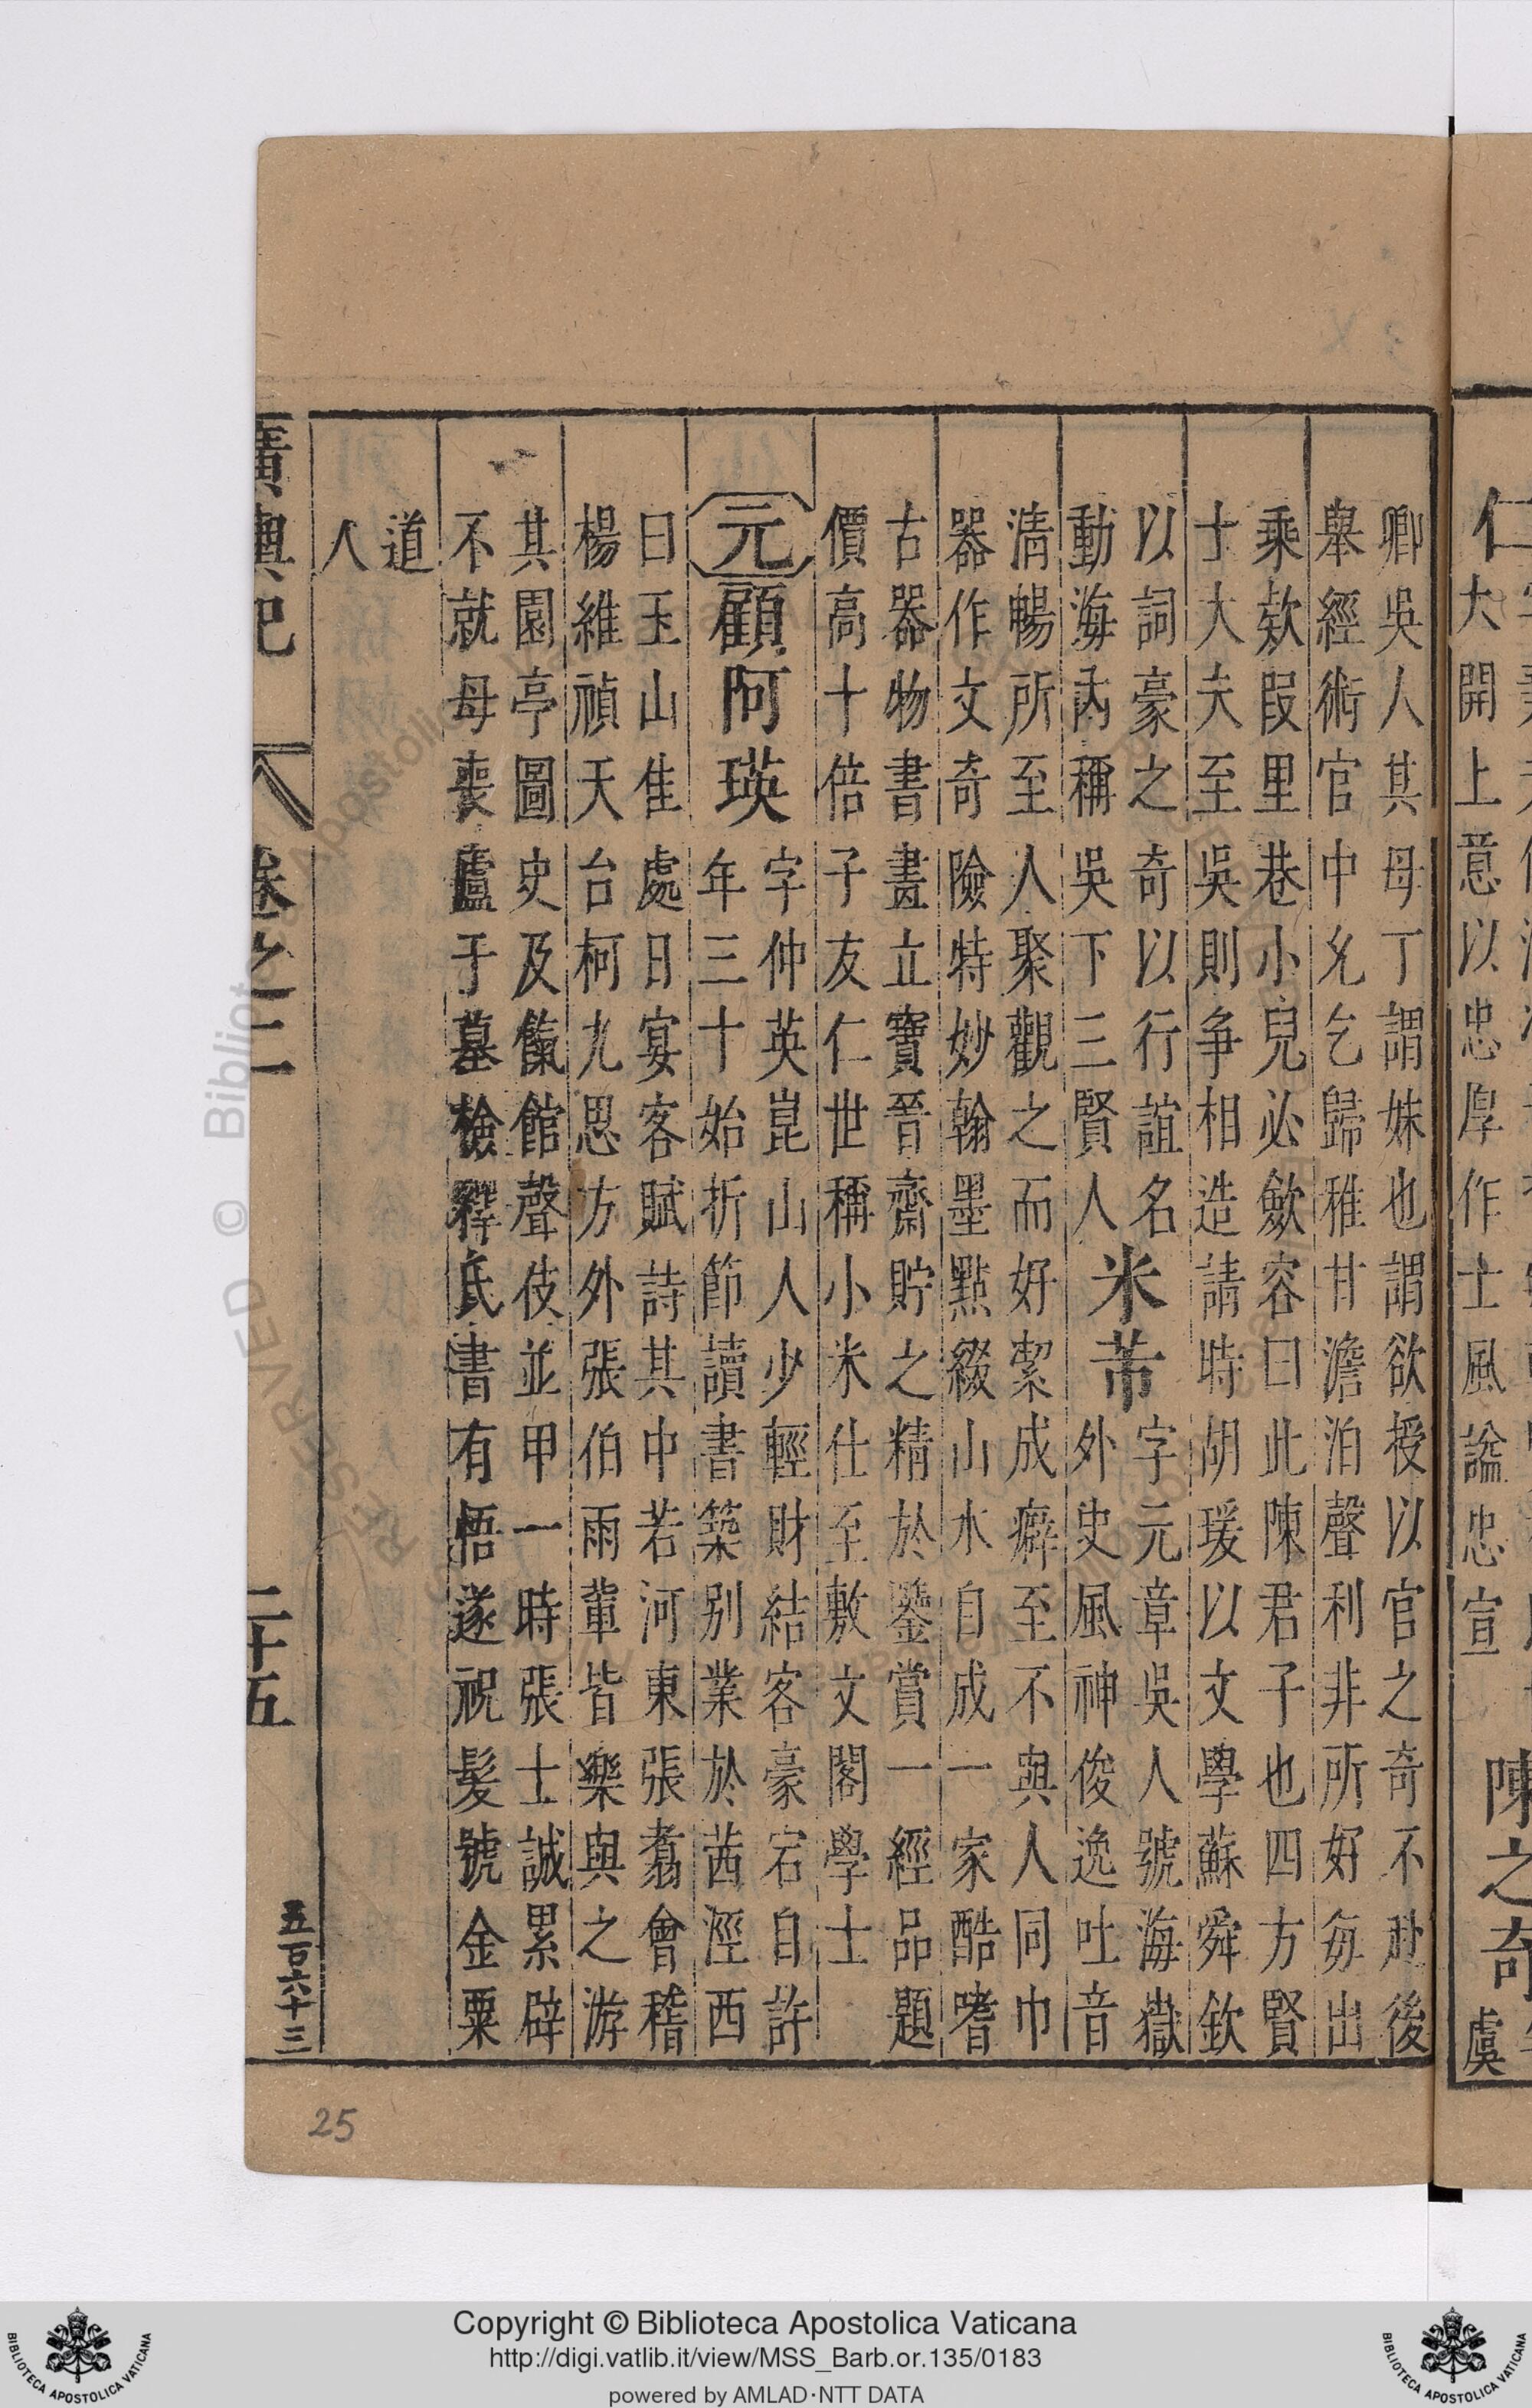 仁
大開上意以忠厚作士風諡忠宣
陳之奇
虞
卿吳人其母丁謂妹也謂欲授以官之奇不赴後
舉經術官中允乞歸稚甘澹泊聲利非所好每出
乘款段里巷小兒必斂容曰此陳君子也四方賢
士大夫至吳則爭相造請時胡瑗以文學蘇舜欽
以詞豪之奇以行誼名
動海內稱吳下三賢人
米芾
字元章吳人號海嶽
外史風神俊逸吐音
清暢所至人聚觀之而好潔成癖至不與人同巾
器作文奇險特妙翰墨點綴山水自成一家酷嗜
古器物書畫立寶晉齋貯之精於鑒賞一經品題
價高十倍子友仁世稱小米仕至敷文閣學士
元
顧阿瑛
字仲英崑山人少輕財結客豪宕自許
年三十始折節讀書築別業於茜涇西
曰玉山佳處日宴客賦詩其中若河東張翥會稽
楊維禎天台柯九思方外張伯雨軰皆樂與之游
其園亭圖史及餼館聲伎並甲一時張士誠累辟
不就母喪廬于墓檢釋氏書有悟遂祝髮號金粟
道
人
廣輿記
卷之三
二十五
五百六十三
25
Copyright © Biblioteca Apostolica Vaticana
http://digi.vatlib.it/view/MSS_Barb.or.135/0183
powered by AMLAD·NTT DATA
BIBLIOTECA APOSTOLICA VATICANA
BIBLIOTECA APOSTOLICA VATICANA